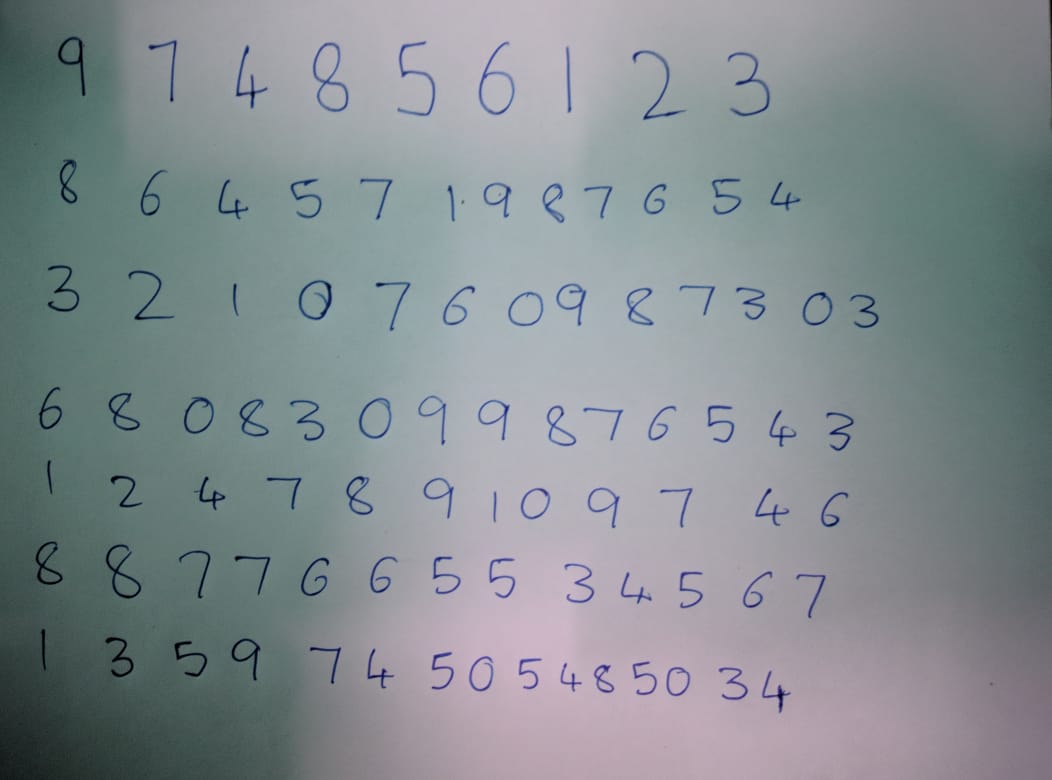 9 7 4 8 5 6 1 2 3
8 6 4 5 7 1 9 8 7 6 5 4
3 2 1 0 7 6 0 9 8 7 3 0 3
6 8 0 8 3 0 9 9 8 7 6 5 4 3
1 2 4 7 8 9 1 0 9 7 4 6
8 8 7 7 6 6 5 5 3 4 5 6 7
1 3 5 9 7 4 5 0 5 4 8 5 0 3 4